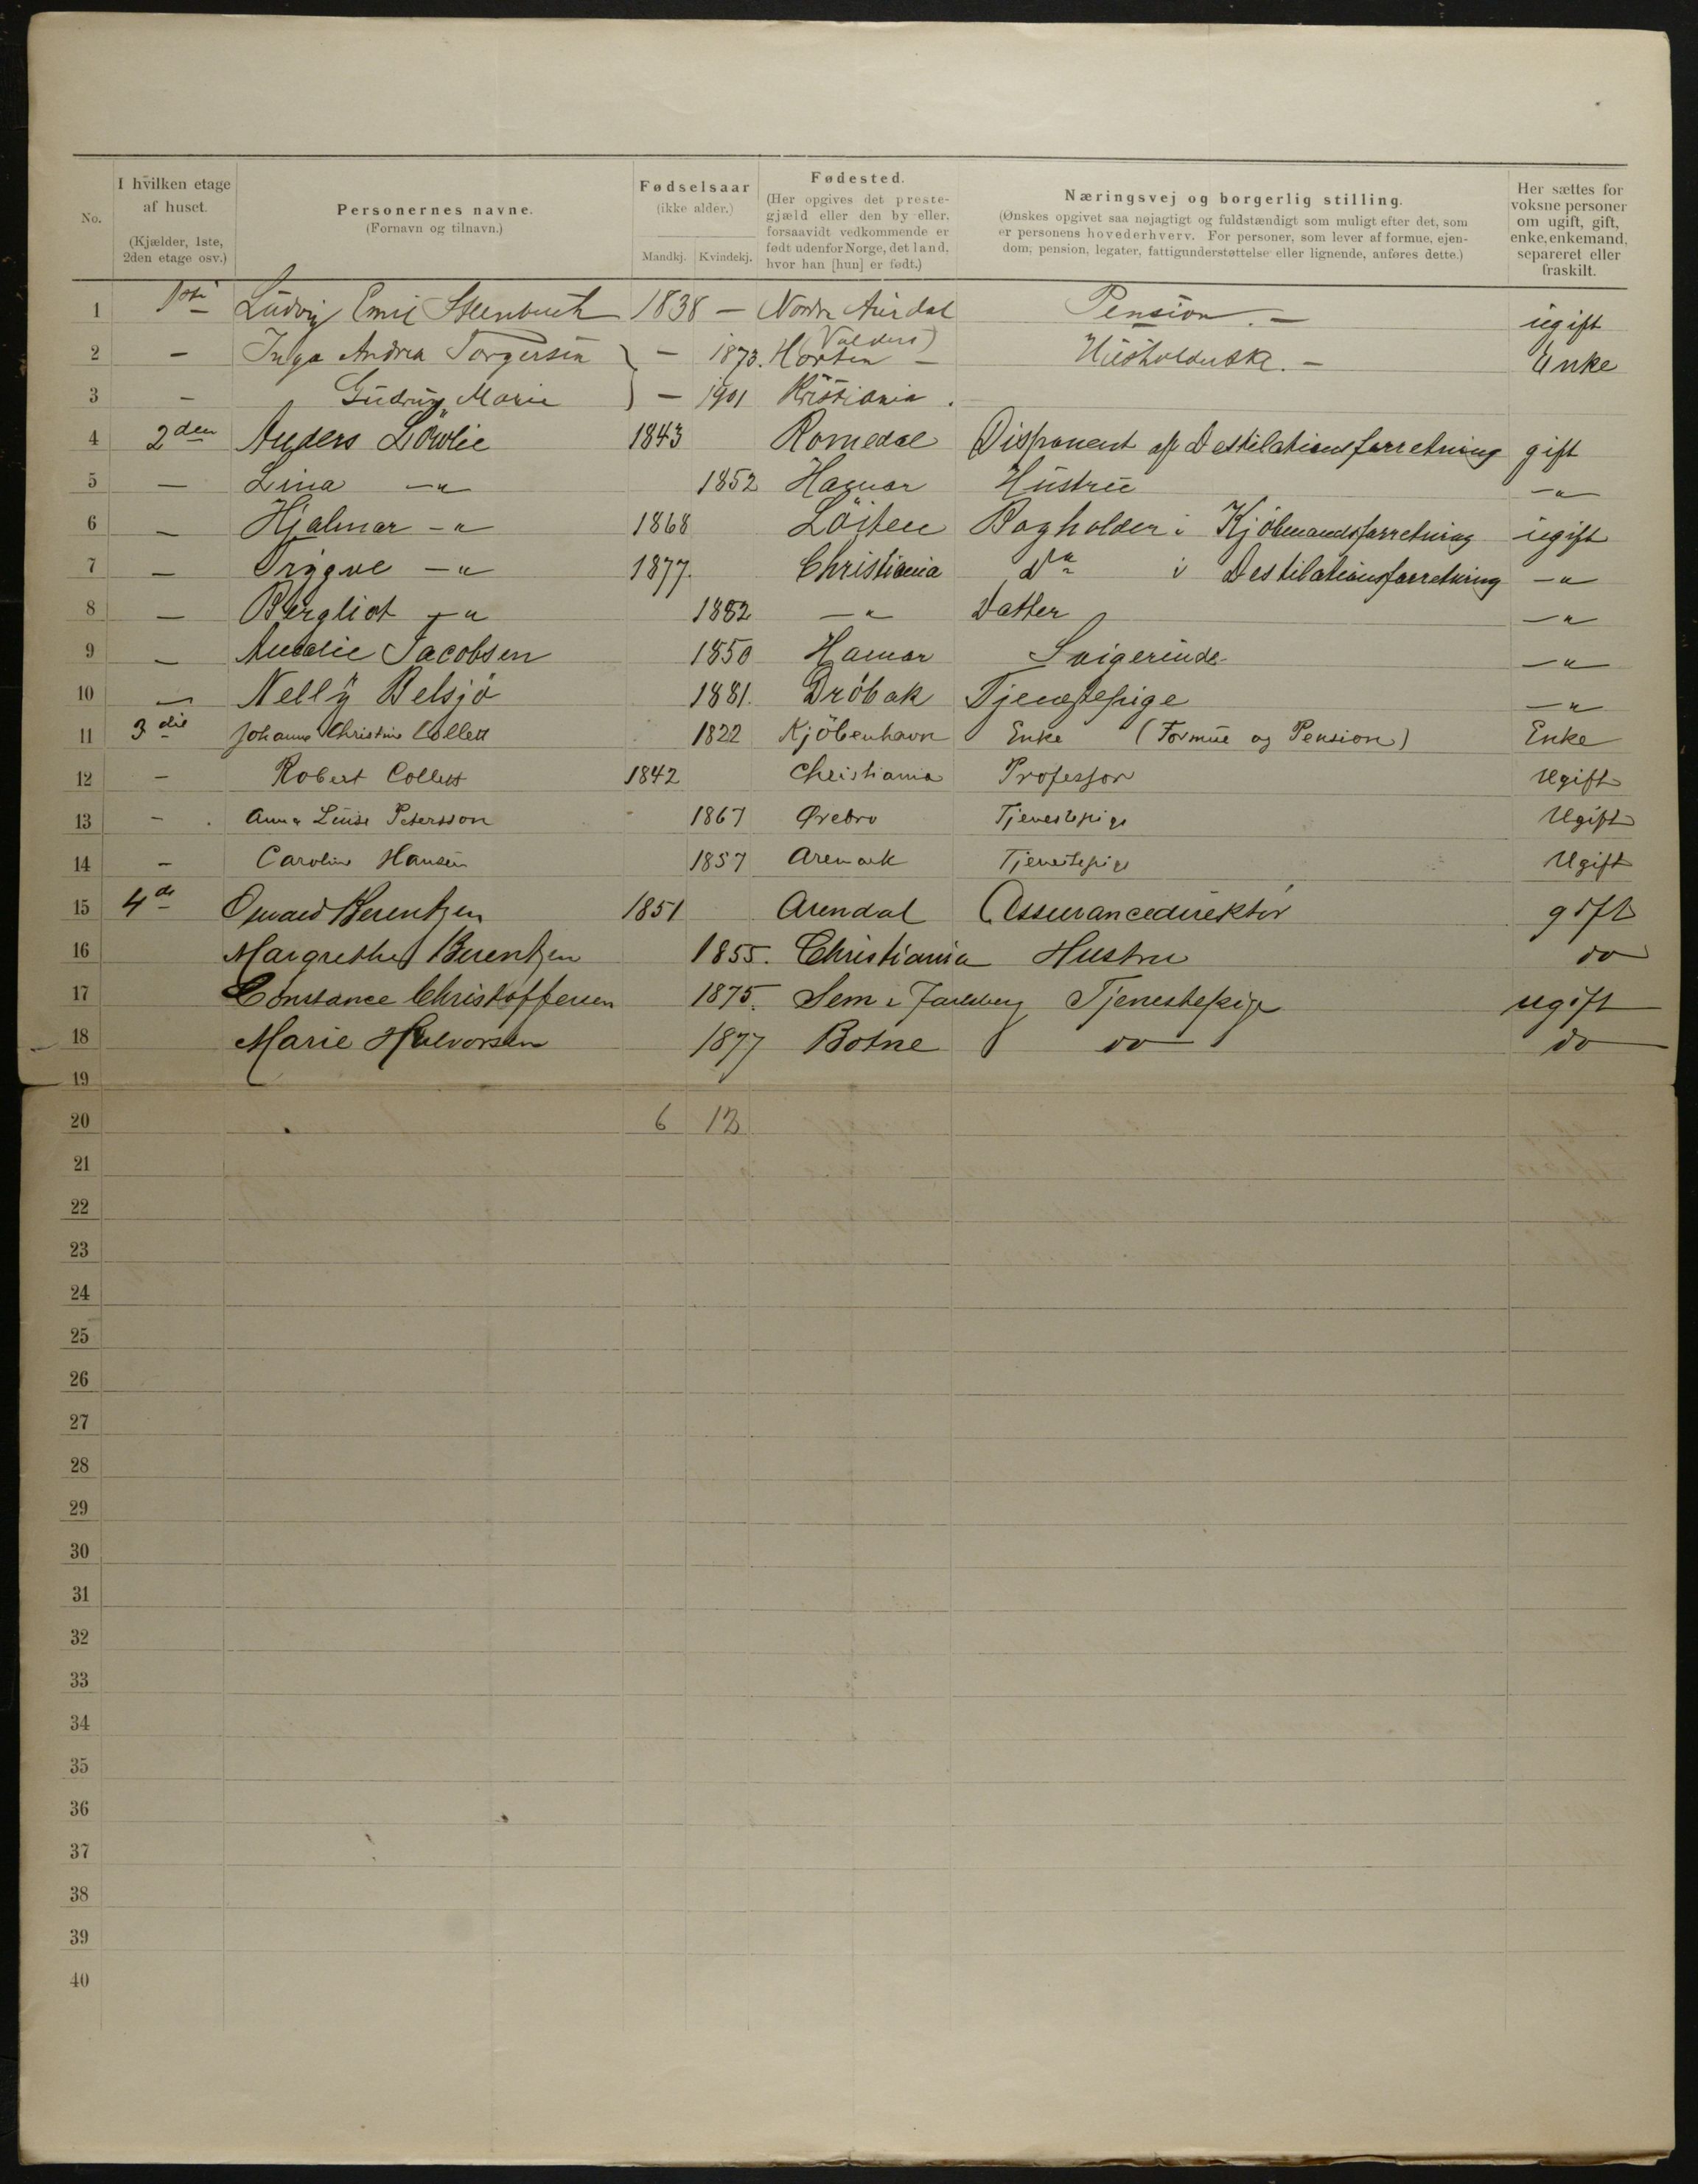 No.
I hvilken etage af huset.
(Kjælder, 1ste, 2den etage osv.)
Personernes navne.
(Fornavn og tilnavn.)
Fødselsaar
(ikke alder.)
Mandkj. Kvindekj.
Fødested.
(Her opgives det preste-
gjæld eller den by eller,
forsaavidt vedkommende er
født udenfor Norge, det land,
hvor han [hun] er født.)
Næringsvej og borgerlig stilling.
(Ønskes opgivet saa nøjagtigt og fuldstændigt som muligt efter det, som
er personens hovederhverv. For personer, som lever af formue, ejen-
dom, pension, legater, fattigunderstøttelse eller lignende, anføres dette.)
Her sættes for
voksne personer
om ugift, gift,
enke, enkemand,
separeret eller
fraskilt.
1 1ste Ludvig Emil Steenbuch 1838 — Nordre Aurdal Pension. — ugift
Valders)
2 — Inga Andrea Torgersen } — 1873. Horten — Husholderske. — Enke
3 — Gudrun Marie } — 1901 Kristiania.
4 2den Anders Löwlie 1843 Romedal Disponent af Destilationsforretning gift
5 — Lina —"— 1852 Hamar Hustru —"—
6 — Hjalmar —"— 1868 Löiten Bogholder i Kjöbmandsforretning ugift
7 — Trygve —"— 1877. Christiania do i Destilationsforretning —"—
8 — Bergliot —"— 1882 —"— Datter —"—
9 — Amalie Jacobsen 1850 Hamar Svigerinde —"—
10 — Nelly Belsjö 1881. Dröbak Tjenestepige —"—
11 3die Johanne Christine Collett 1822 Kjöbenhavn Enke (Formue og Pension) Enke
12 — Robert Collett 1842 Christiania Professor Ugift
13 — Anna Luise Petersson 1867 Ørebro Tjenestepige Ugift
14 — Caroline Hansen 1857 Aremark Tjenestepige Ugift
15 4de Berentzen 1851 Arendal Assurancedirektör gift
16 Margrethe Berentzen 1855. Christiania Hustru do
17 Constance Christoffersen 1875. Sem i Jarlsberg Tjenestepige ugift
18 Marie Halvorsen 1877 Botne do do
19
20 6 12
21
22
23
24
25
26
27
28
29
30
31
32
33
34
35
36
37
38
39
40